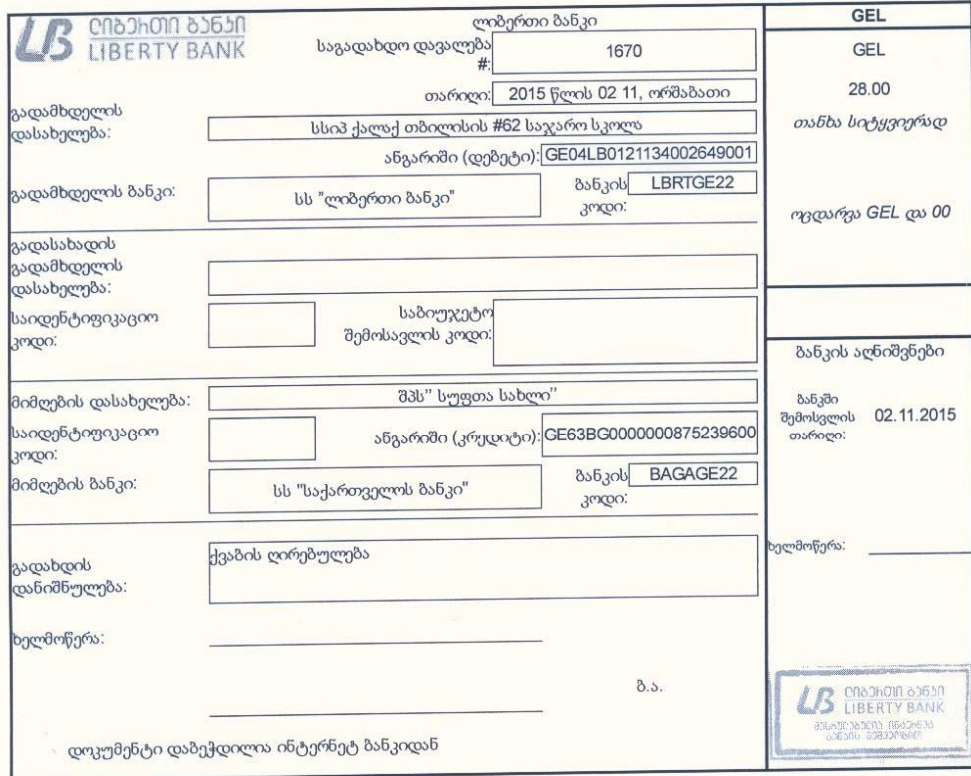 ლიბერთი ბანკი
LIBERTY BANK
ლიბერთი ბანკი
საგადახდო დავალება #: 1670
თარიღი: 2015 წლის 02 11, ორშაბათი
გადამხდელის დასახელება: სსიპ ქალაქ თბილისის #62 საჯარო სკოლა
ანგარიში (დებეტი): GE04LB0121134002649001
გადამხდელის ბანკი: სს "ლიბერთი ბანკი"
ბანკის კოდი: LBRTGE22
გადასახადის გადამხდელის დასახელება:
საიდენტიფიკაციო კოდი:
საბიუჯეტო შემოსავლის კოდი:
მიმღების დასახელება: შპს'' სუფთა სახლი''
საიდენტიფიკაციო კოდი:
ანგარიში (კრედიტი): GE63BG0000000875239600
მიმღების ბანკი: სს "საქართველოს ბანკი"
ბანკის კოდი: BAGAGE22
გადახდის დანიშნულება: ქვაბის ღირებულება
ხელმოწერა:
ბ.ა.
დოკუმენტი დაბეჭდილია ინტერნეტ ბანკიდან
GEL
GEL
28.00
თანხა სიტყვიერად
ოცდარვა GEL და 00
ბანკის აღნიშვნები
ბანკში შემოსვლის თარიღი: 02.11.2015
ხელმოწერა:
ლიბერთი ბანკი
LIBERTY BANK